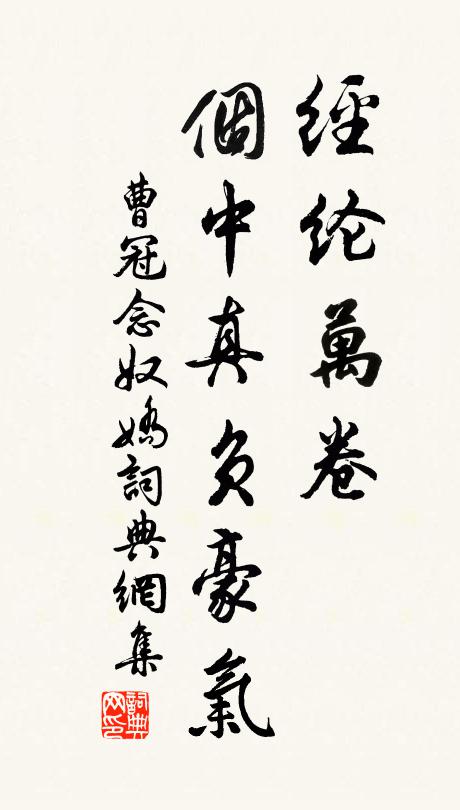 經纶萬卷
個中真負豪氣
曹冠念奴嬌詞典網集
詞典网印